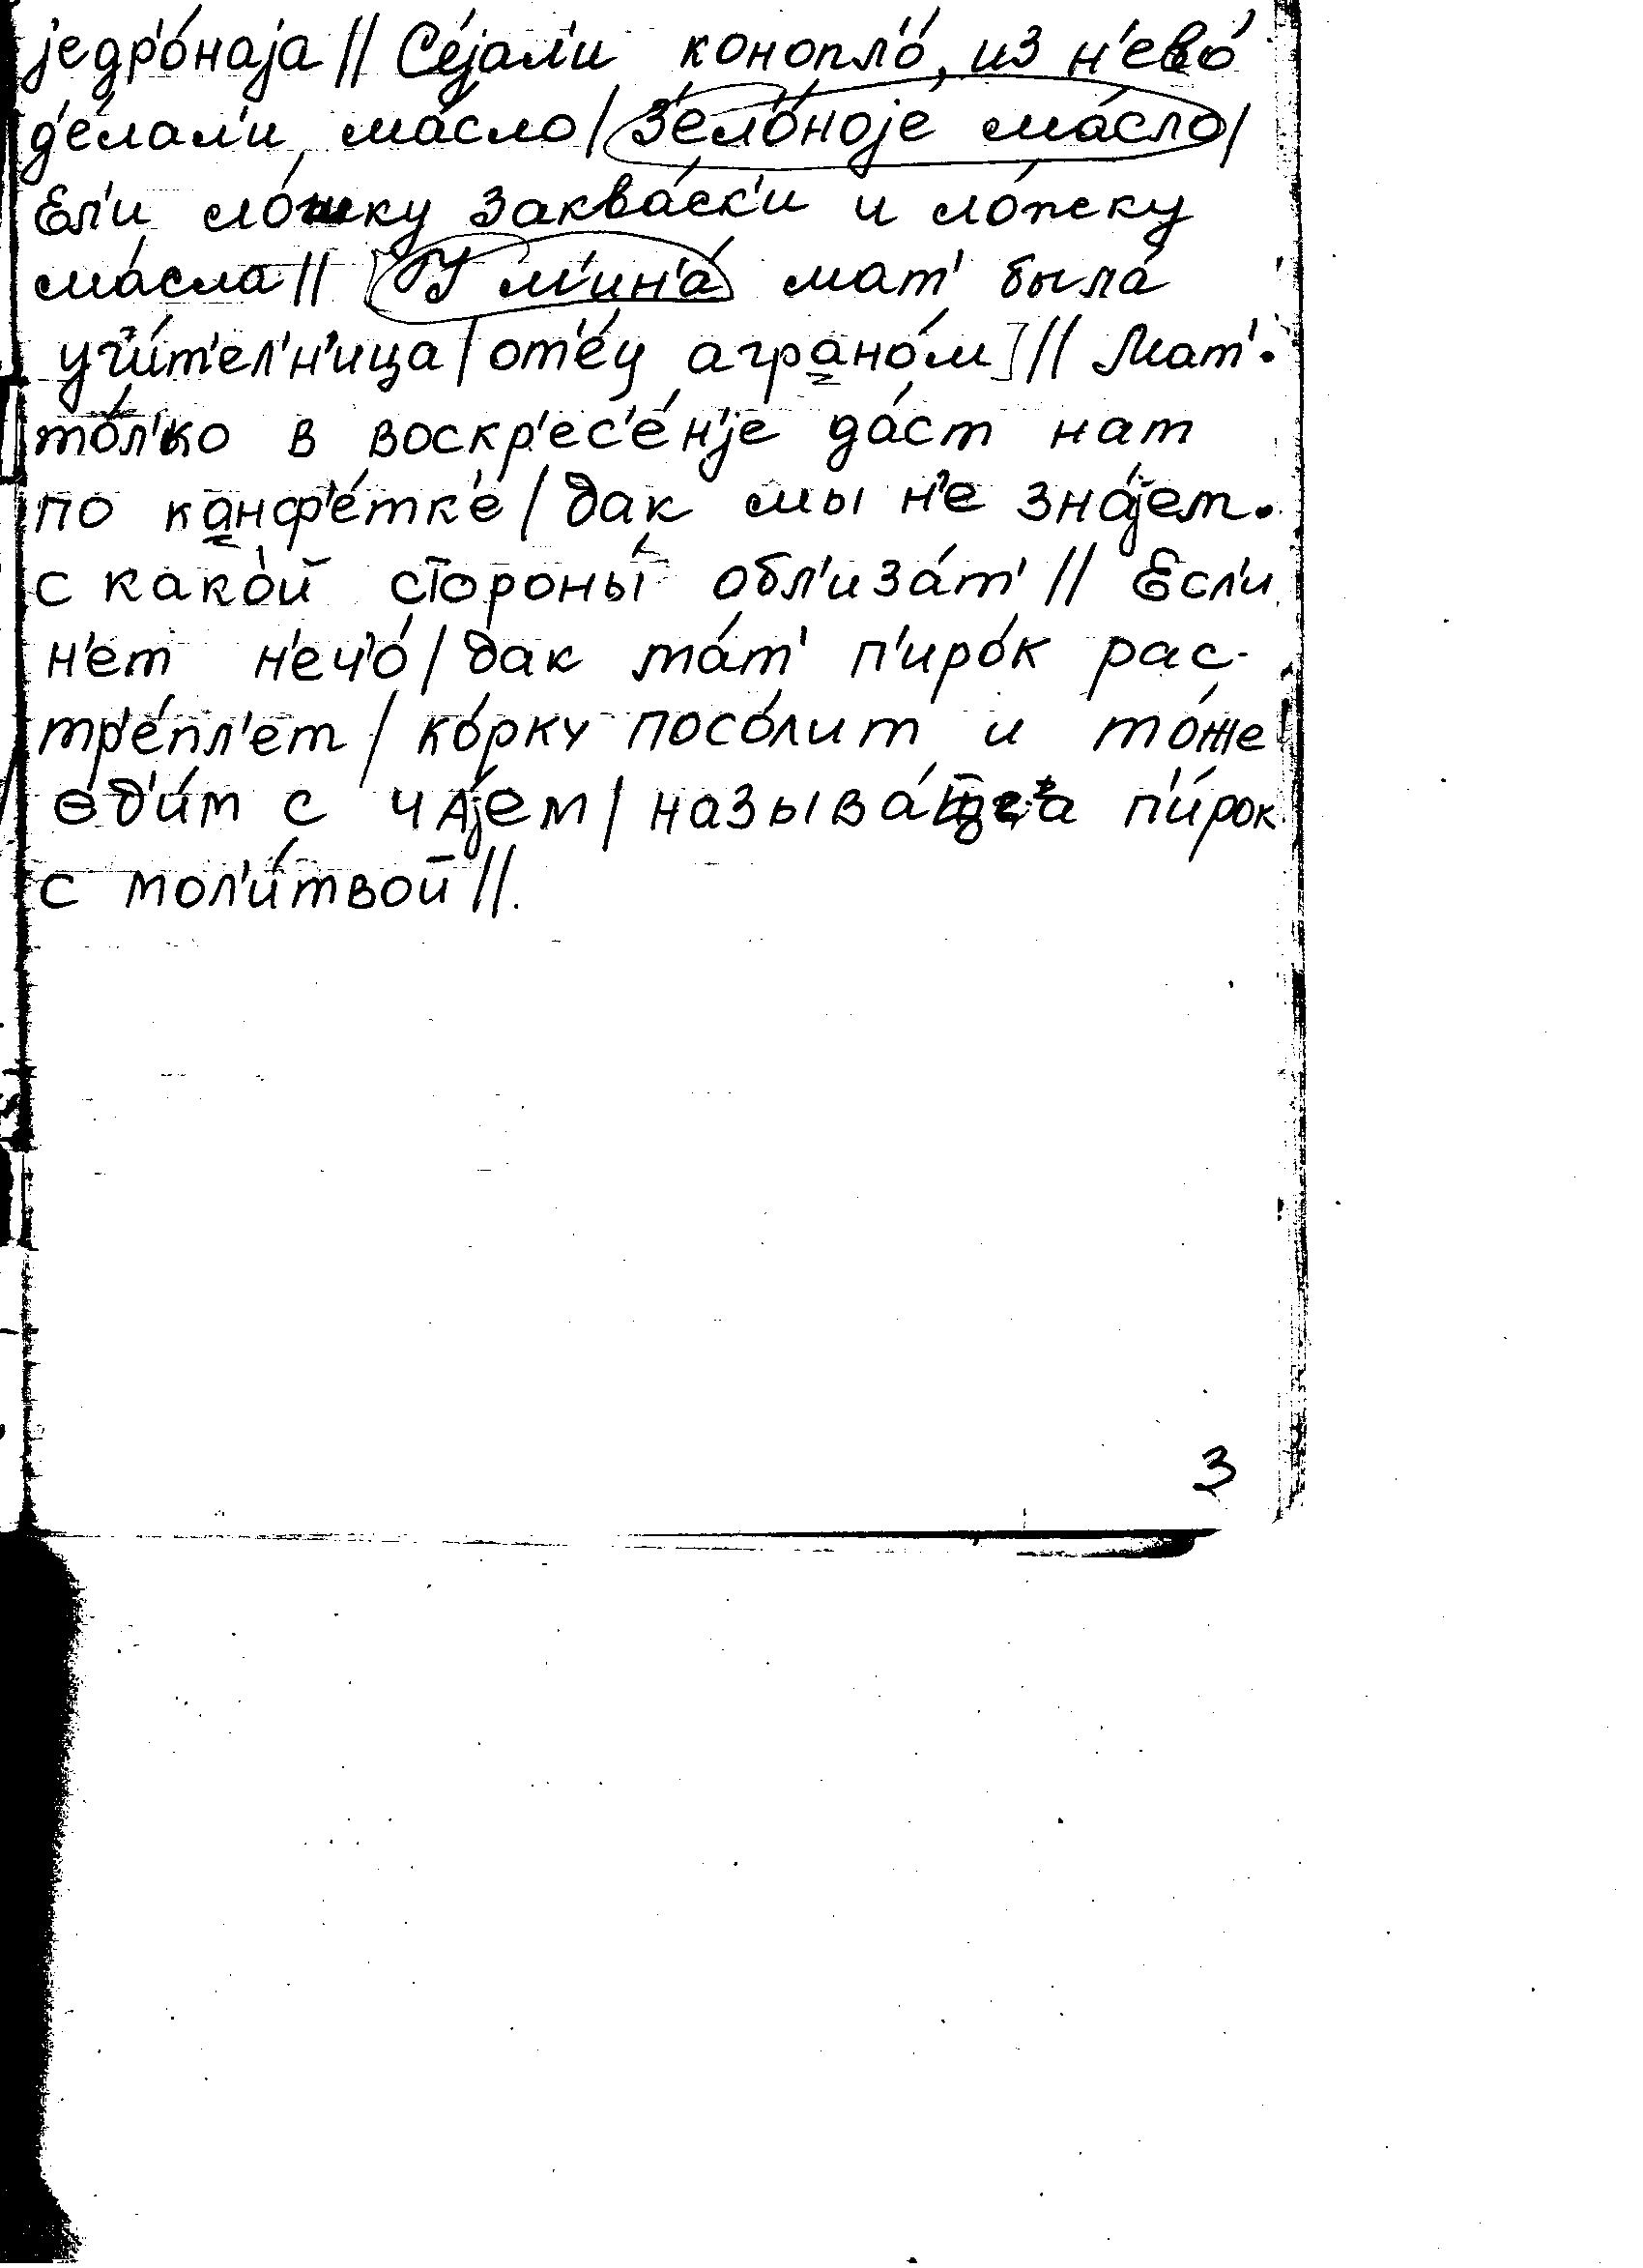 jедр'о́наjа // Се́jал'и конопл'о́, из н'ево́
д'е́лал'и ма́сло / З'ел'о́ноjе ма́сло /
Ел'и ло́шку заква́ск'и и ло́шку
ма́сла // [У м'ин'а́ мат' была́
уч'и́т'ел'н'ица / от'е́ц аграно́м] // Мат'
то́л'ко в воскр'ес'е́н'jе да́ст нат
по канф'е́тк'е / дак мы н'е зна́jем
с како́й стороны́ обл'иза́т' // Есл'и
н'ет н'еч'о́ / дак ма́т' п'иро́к рас-
тр'е́пл'ет / ко́рку посо́лит и то́же
ед'и́м с ча́jем / п'и́рок
с мол'и́твой //.
3